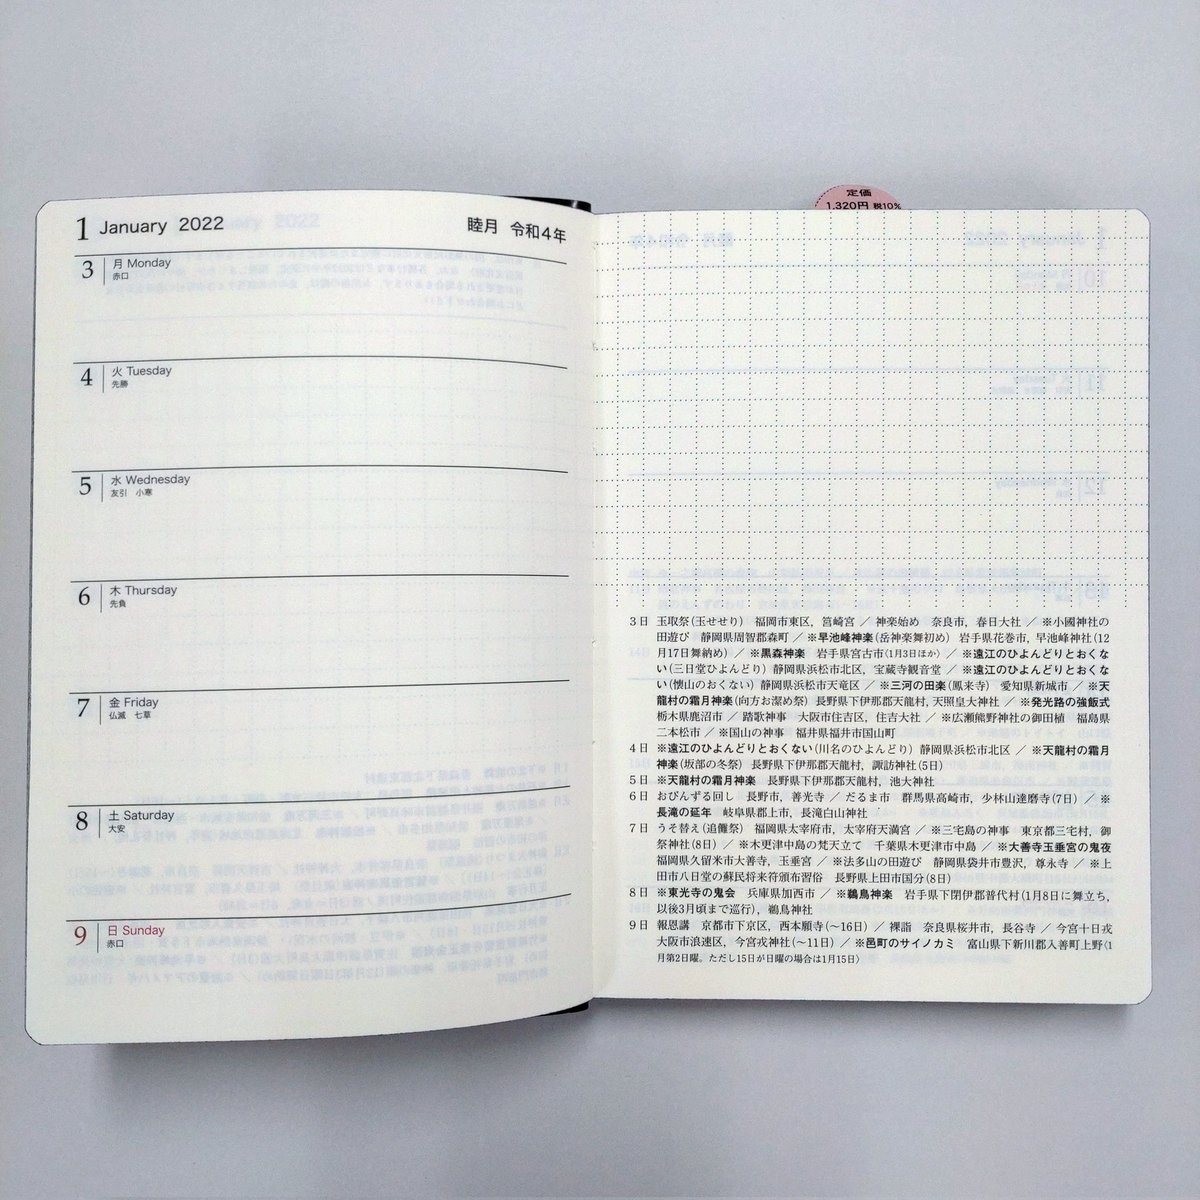 1 January 2022
睦月 令和4年
3 月 Monday
赤口
4 火 Tuesday
先勝
5 水 Wednesday
友引 小寒
6 木 Thursday
先負
7 金 Friday
仏滅 七草
8 土 Saturday
大安
9 日 Sunday
赤口
定価
1,320円 税10%
3日 玉取祭(玉せせり) 福岡市東区,筥崎宮 ／ 神楽始め 奈良市,春日大社 ／ ※小國神社の
田遊び 静岡県周智郡森町 ／ ※早池峰神楽(岳神楽舞初め) 岩手県花巻市,早池峰神社(12
月17日舞納め) ／ ※黒森神楽 岩手県宮古市(1月3日ほか) ／ ※遠江のひよんどりとおくな
い(三日堂ひよんどり) 静岡県浜松市北区,宝蔵寺観音堂 ／ ※遠江のひよんどりとおくな
い(懐山のおくない) 静岡県浜松市天竜区 ／ ※三河の田楽(鳳来寺) 愛知県新城市 ／ ※天
龍村の霜月神楽(向方お潔め祭) 長野県下伊那郡天龍村,天照皇大神社 ／ ※発光路の強飯式
栃木県鹿沼市 ／ 踏歌神事 大阪市住吉区,住吉大社 ／ ※広瀬熊野神社の御田植 福島県
二本松市 ／ ※国山の神事 福井県福井市国山町
4日 ※遠江のひよんどりとおくない(川名のひよんどり) 静岡県浜松市北区 ／ ※天龍村の霜月
神楽(坂部の冬祭) 長野県下伊那郡天龍村,諏訪神社(5日)
5日 ※天龍村の霜月神楽 長野県下伊那郡天龍村,池大神社
6日 おびんずる回し 長野市,善光寺 ／ だるま市 群馬県高崎市,少林山達磨寺(7日) ／ ※
長滝の延年 岐阜県郡上市,長滝白山神社
7日 うそ替え(追儺祭) 福岡県太宰府市,太宰府天満宮 ／ ※三宅島の神事 東京都三宅村,御
祭神社(8日) ／ ※木更津中島の梵天立て 千葉県木更津市中島 ／ ※大善寺玉垂宮の鬼夜
福岡県久留米市大善寺,玉垂宮 ／ ※法多山の田遊び 静岡県袋井市豊沢,尊永寺 ／ ※上
田市八日堂の蘇民将来符頒布習俗 長野県上田市国分(8日)
8日 ※東光寺の鬼会 兵庫県加西市 ／ ※鵜鳥神楽 岩手県下閉伊郡普代村(1月8日に舞立ち,
以後3月頃まで巡行),鵜鳥神社
9日 報恩講 京都市下京区,西本願寺(〜16日) ／ 裸詣 奈良県桜井市,長谷寺 ／ 今宮十日戎
大阪市浪速区,今宮戎神社(〜11日) ／ ※邑町のサイノカミ 富山県下新川郡入善町上野(1
月第2日曜。ただし15日が日曜の場合は1月15日)